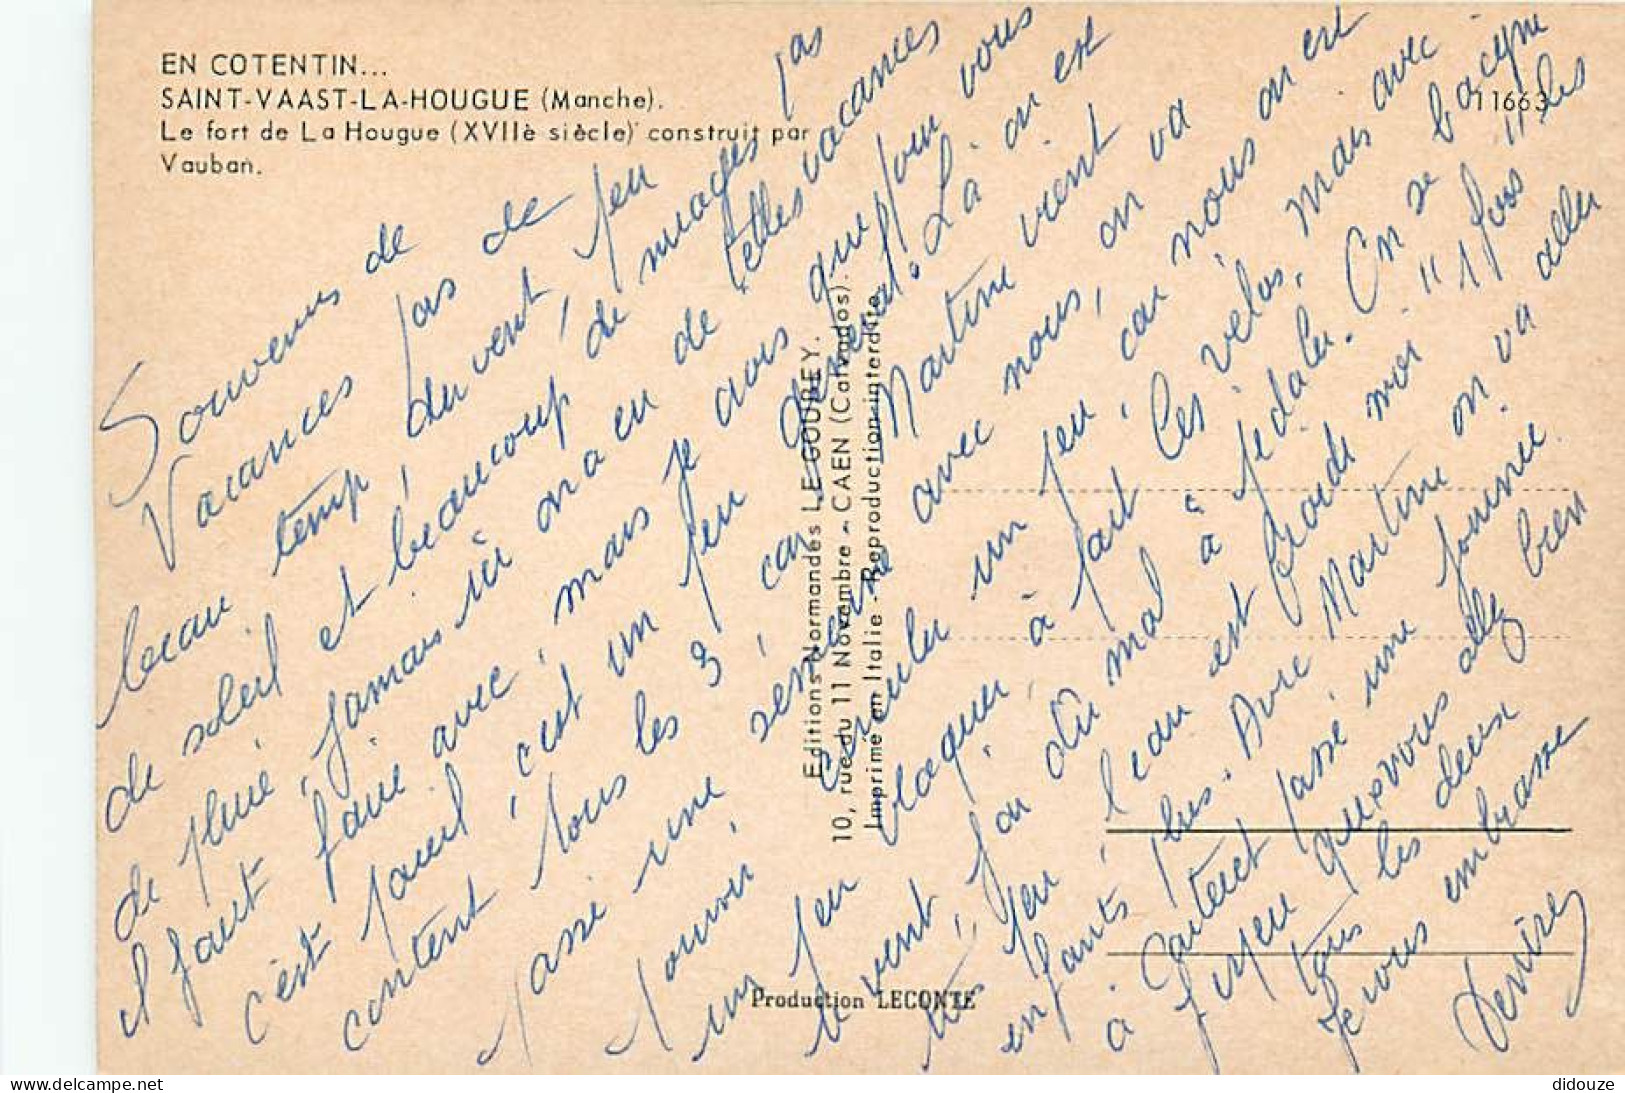 EN COTENTIN...
SAINT-VAAST-LA-HOUGUE (Manche).
Le fort de La Hougue (XVIIè siècle) construit par
Vauban.
11663
Souvenirs de
Vacances pas de peu pas
beau temps, du vent, peu
de soleil et beaucoup de nuages
de pluie, jamais ici on a eu de telles vacances
il faut faire avec, mais je crois que pour vous
c'est pareil, c'est un peu général. Là on est
content tous les 3, car Martine vient
passé une semaine avec nous, on va
pouvoir circuler un peu, car nous on est
un peu bloquer, à part les vélos, mais avec
le vent, j'ai du mal à pédaler. On se baigne
très peu, l'eau est froide moi "1 fois" les
enfants plus. Avec Martine on va aller
à passé une journée.
J'espère que vous allez bien
tous les deux
Je vous embrasse
Denise
Editions Normandes LE GOUBEY.
10, rue du 11 Novembre - CAEN (Calvados).
Imprimé en Italie - Reproduction interdite
Production LECONTE
delcampe.net
didouze